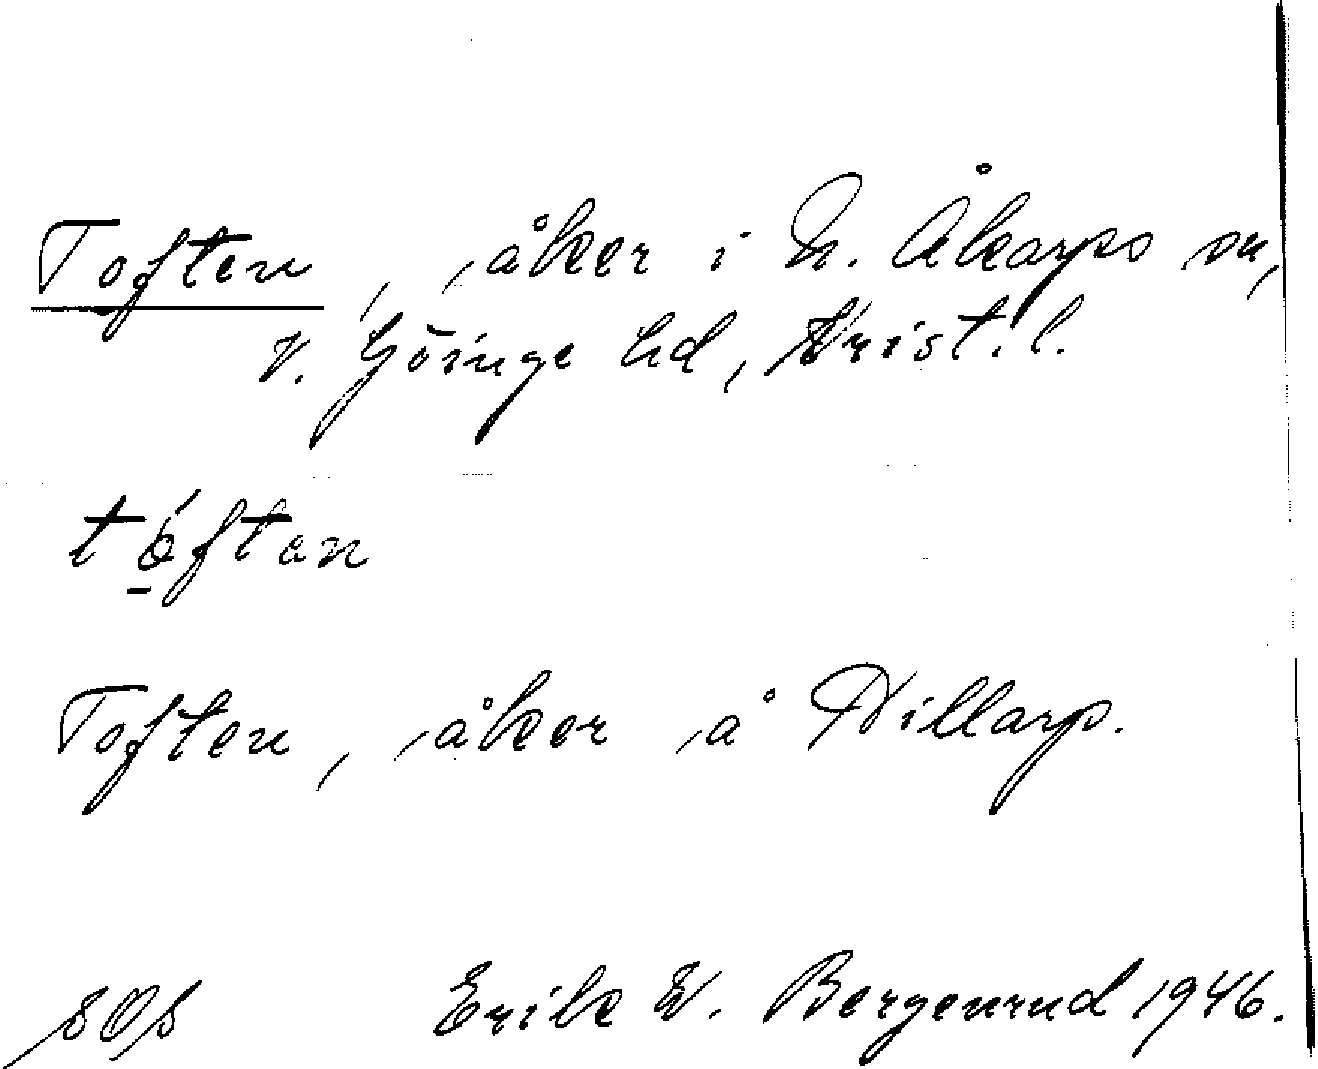 Toften, åker i N. Åkarps sn,
V. Göinge hd, Krist. l.
tó̱ften
Toften, åker å Dillarp.
Erik W. Bergenrud 1946.